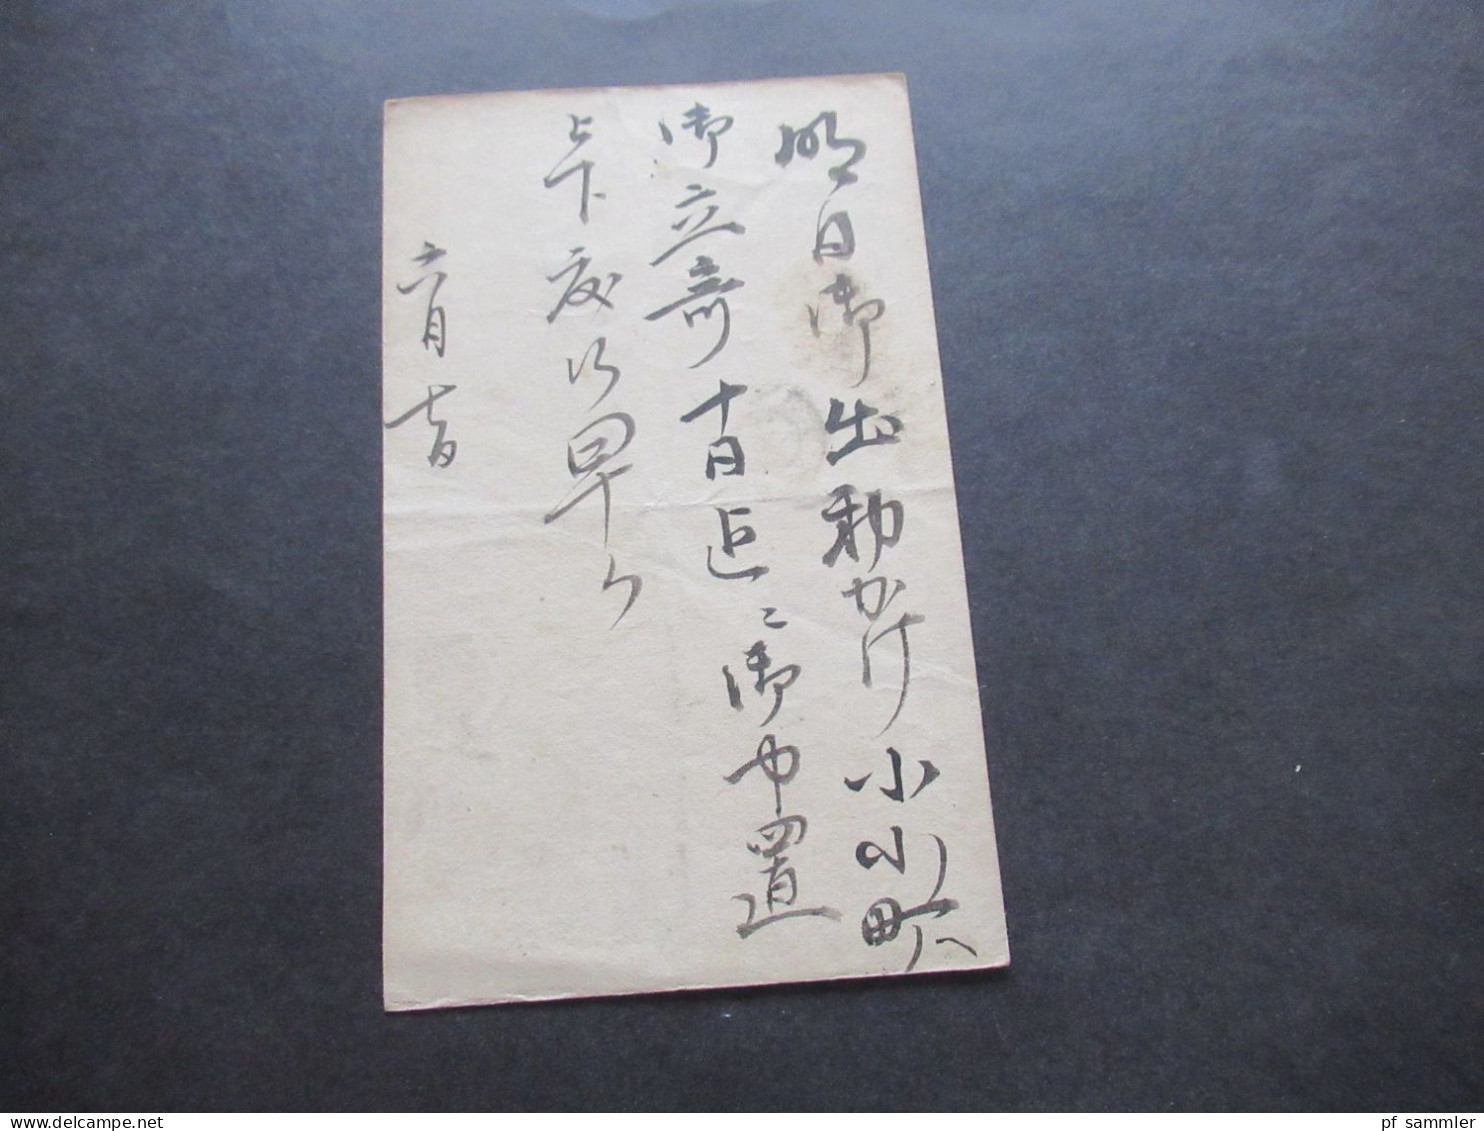 明日御出勤かけ小川町へ
御立寄十日迄ニ御申置
被下度候早々
六月七日
pf sammler